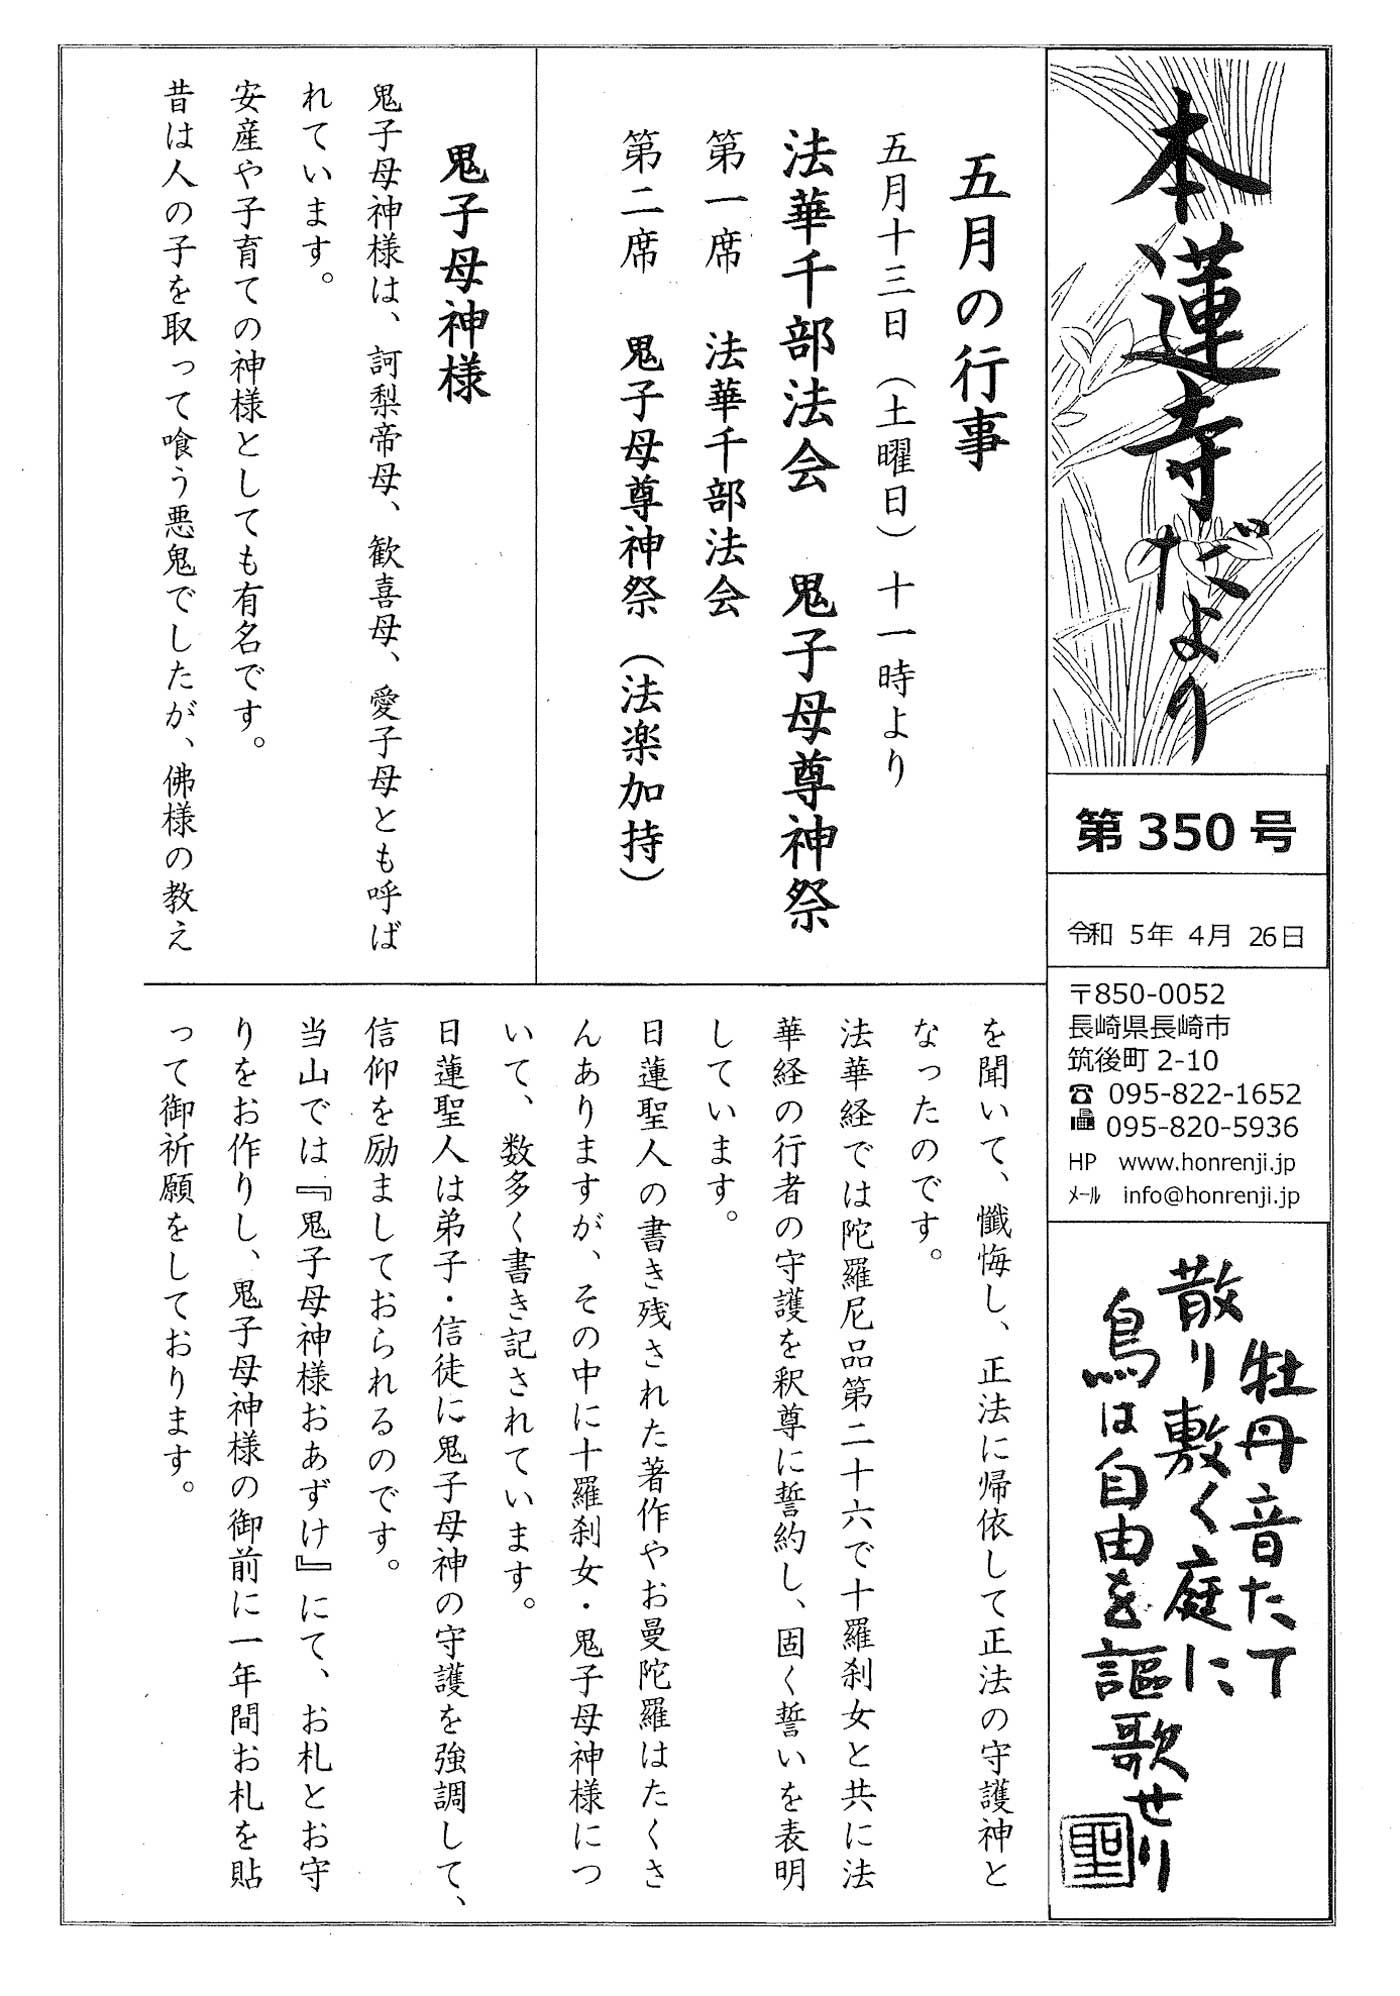 本蓮寺だより
第350号
令和 5年 4月 26日
〒850-0052
長崎県長崎市
筑後町 2-10
☎ 095-822-1652
📠 095-820-5936
HP www.honrenji.jp
ﾒｰﾙ info@honrenji.jp
牡丹音たて
散り敷く庭に
鳥は自由を謳歌せり
聖
五月の行事
五月十三日（土曜日）十一時より
法華千部法会 鬼子母尊神祭
第一席 法華千部法会
第二席 鬼子母尊神祭（法楽加持）
鬼子母神様
鬼子母神様は、訶梨帝母、歓喜母、愛子母とも呼ば
れています。
安産や子育ての神様としても有名です。
昔は人の子を取って喰う悪鬼でしたが、佛様の教え
を聞いて、懺悔し、正法に帰依して正法の守護神と
なったのです。
法華経では陀羅尼品第二十六で十羅刹女と共に法
華経の行者の守護を釈尊に誓約し、固く誓いを表明
しています。
日蓮聖人の書き残された著作やお曼陀羅はたくさ
んありますが、その中に十羅刹女・鬼子母神様につ
いて、数多く書き記されています。
日蓮聖人は弟子・信徒に鬼子母神の守護を強調して、
信仰を励ましておられるのです。
当山では『鬼子母神様おあずけ』にて、お札とお守
りをお作りし、鬼子母神様の御前に一年間お札を貼
って御祈願をしております。